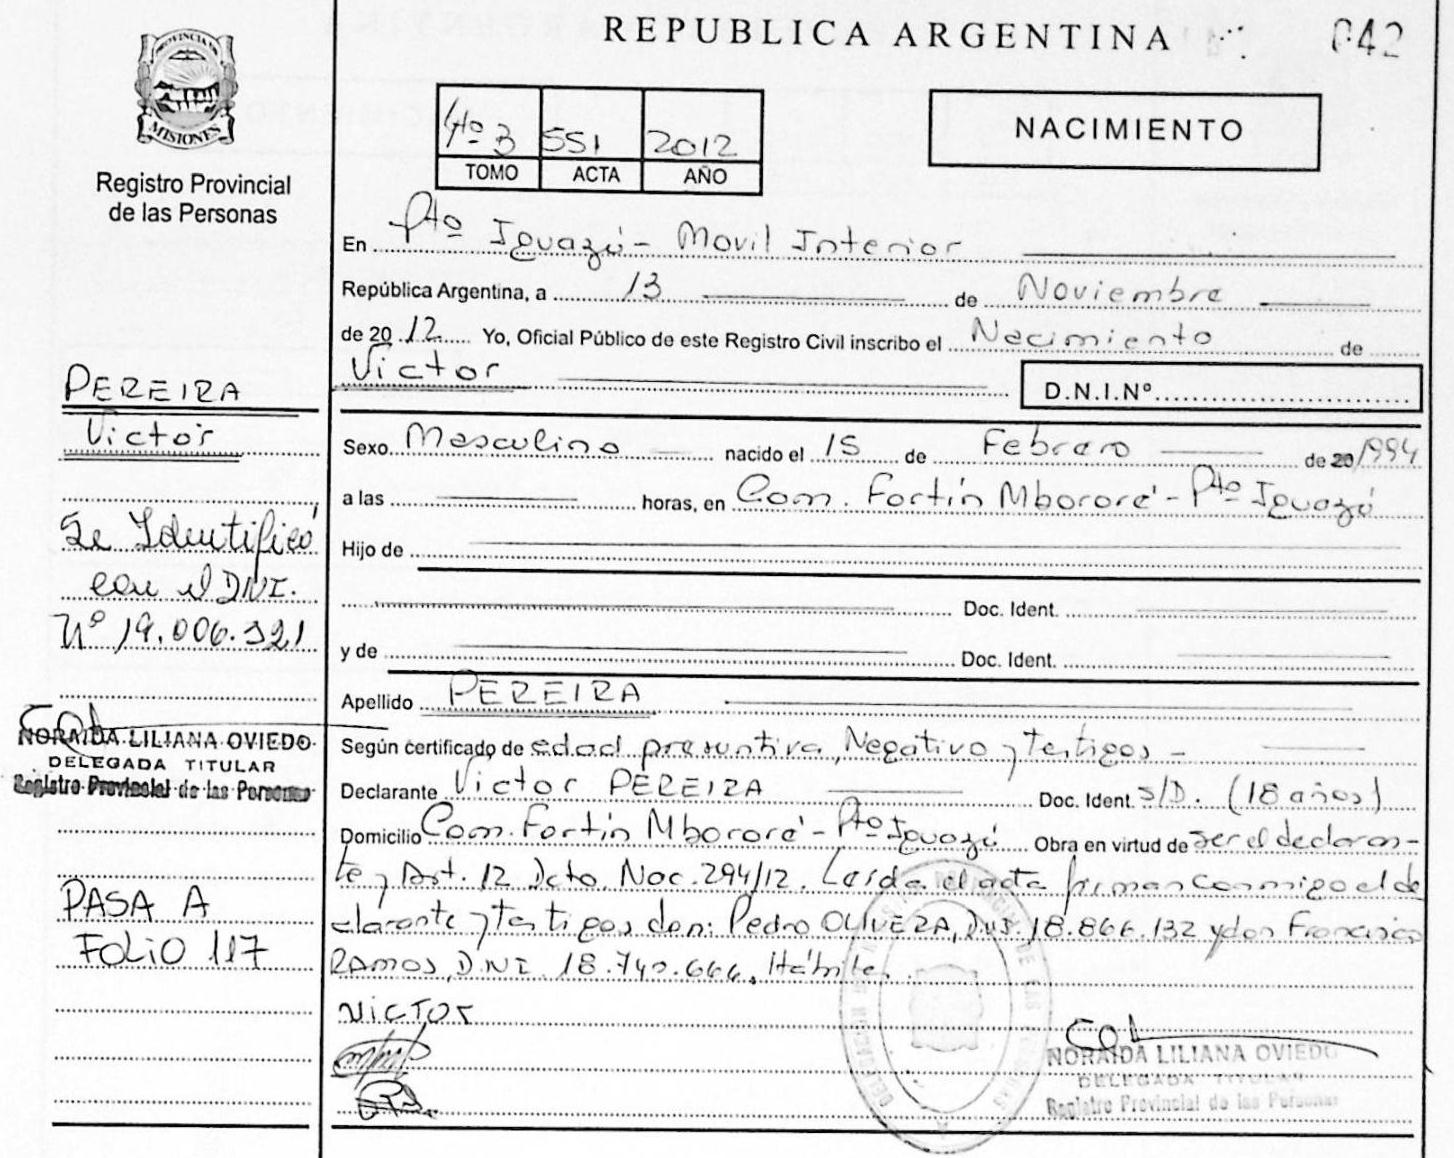 REPUBLICA ARGENTINA
042
PROVINCIA DE
MISIONES
Registro Provincial
de las Personas
Pto 3 551 2012
TOMO ACTA AÑO
NACIMIENTO
En Pto Iguazú - Movil Interior
República Argentina, a 13 de Noviembre
de 2012 Yo, Oficial Público de este Registro Civil inscribo el Nacimiento de
Victor D.N.I.Nº
PEREIRA
Victor
Sexo Masculino nacido el 15 de Febrero de 20 1994
a las horas, en Com. Fortín Mbororé - Pto Iguazú
Se Identificó
con el DNI.
Nº 19.006.321
Hijo de
Doc. Ident.
y de Doc. Ident.
Apellido PEREIRA
NORAIDA LILIANA OVIEDO
DELEGADA TITULAR
Registro Provincial de las Personas
Según certificado de edad presuntiva, Negativo y testigos -
Declarante Victor PEREIRA Doc. Ident. S/D. (18 años)
Domicilio Com. Fortín Mbororé - Pto Iguazú Obra en virtud de ser el declaran-
te y Art. 12 Dcto. Nac. 294/12. Leída el acta firman conmigo el de
clarante y testigos don: Pedro OLIVERA, D.N.I. 18.866.132 y don Francisco
RAMOS, D.NI. 18.740.666, Hábiles.
PASA A
FOLIO 117
VICTOR
NORAIDA LILIANA OVIEDO
DELEGADA TITULAR
Registro Provincial de las Personas